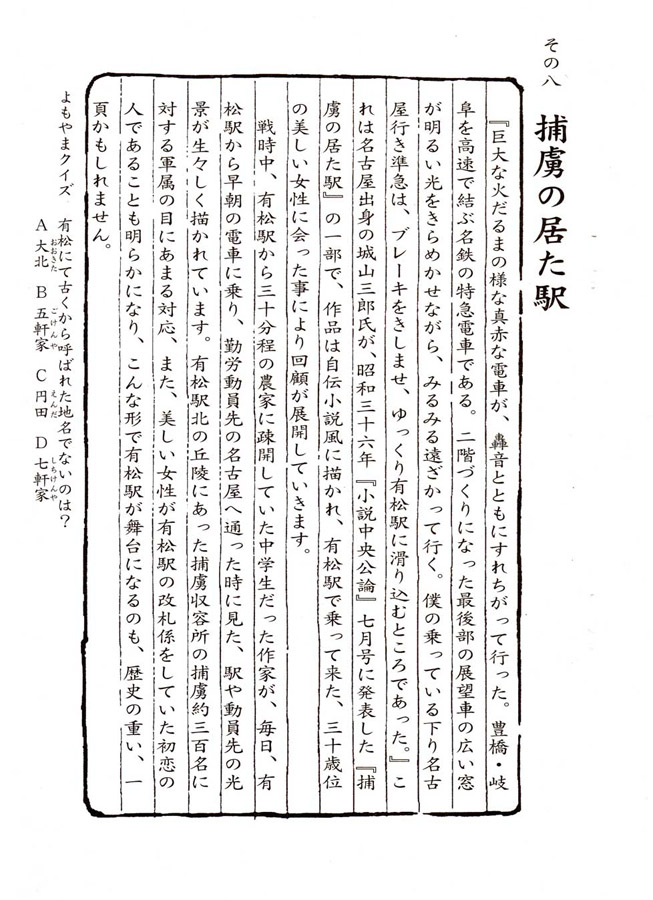 その八
捕虜の居た駅
『巨大な火だるまの様な真赤な電車が、轟音とともにすれちがって行った。豊橋・岐
阜を高速で結ぶ名鉄の特急電車である。二階づくりになった最後部の展望車の広い窓
が明るい光をきらめかせながら、みるみる遠ざかって行く。僕の乗っている下り名古
屋行き準急は、ブレーキをきしませ、ゆっくり有松駅に滑り込むところであった。』こ
れは名古屋出身の城山三郎氏が、昭和三十六年『小説中央公論』七月号に発表した『捕
虜の居た駅』の一部で、作品は自伝小説風に描かれ、有松駅で乗って来た、三十歳位
の美しい女性に会った事により回顧が展開していきます。
戦時中、有松駅から三十分程の農家に疎開していた中学生だった作家が、毎日、有
松駅から早朝の電車に乗り、勤労動員先の名古屋へ通った時に見た、駅や動員先の光
景が生々しく描かれています。有松駅北の丘陵にあった捕虜収容所の捕虜約三百名に
対する軍属の目にあまる対応、また、美しい女性が有松駅の改札係をしていた初恋の
人であることも明らかになり、こんな形で有松駅が舞台になるのも、歴史の重い、一
頁かもしれません。
よもやまクイズ 有松にて古くから呼ばれた地名でないのは？
A 大北 B 五軒家 C 円田 D 七軒家
おおきた ごけんや えんだ しちけんや